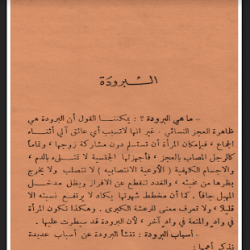 البرودة
- ما هي البرودة ؟ : يمكننا القول أن البرودة هي
ظاهرة العجز النسائي . غير انها لاتسبب أي عائق آلي أثناء
الجماع ، فبإمكان المرأة أن تستسلم دون مشاركة زوجها ، وتماماً
كالرجل المصاب بالعجز ، فأجهزتها الجنسية لا تمتلىء بالدم ،
والاجسام الكهفية ( الأوعية الانتصابية ) لا تتصلب ولا يخرج
بظرها من مخبئه ، والغدد تنقطع عن الافراز ويظل مدخل
المهبل جافاً . كما أن مخطط شهوتها يكاد لا يرتفع نسبته الا
قليلا ، ولا تعرف معنى للرعشة الكبرى . وهكذا تكون المرأة
في واد والمتعة في واد آخر ، لأن البرودة قد سيطرت عليها .
- أسباب البرودة : تنشأ البرودة عن أسباب عديدة
نذكر أهمها :